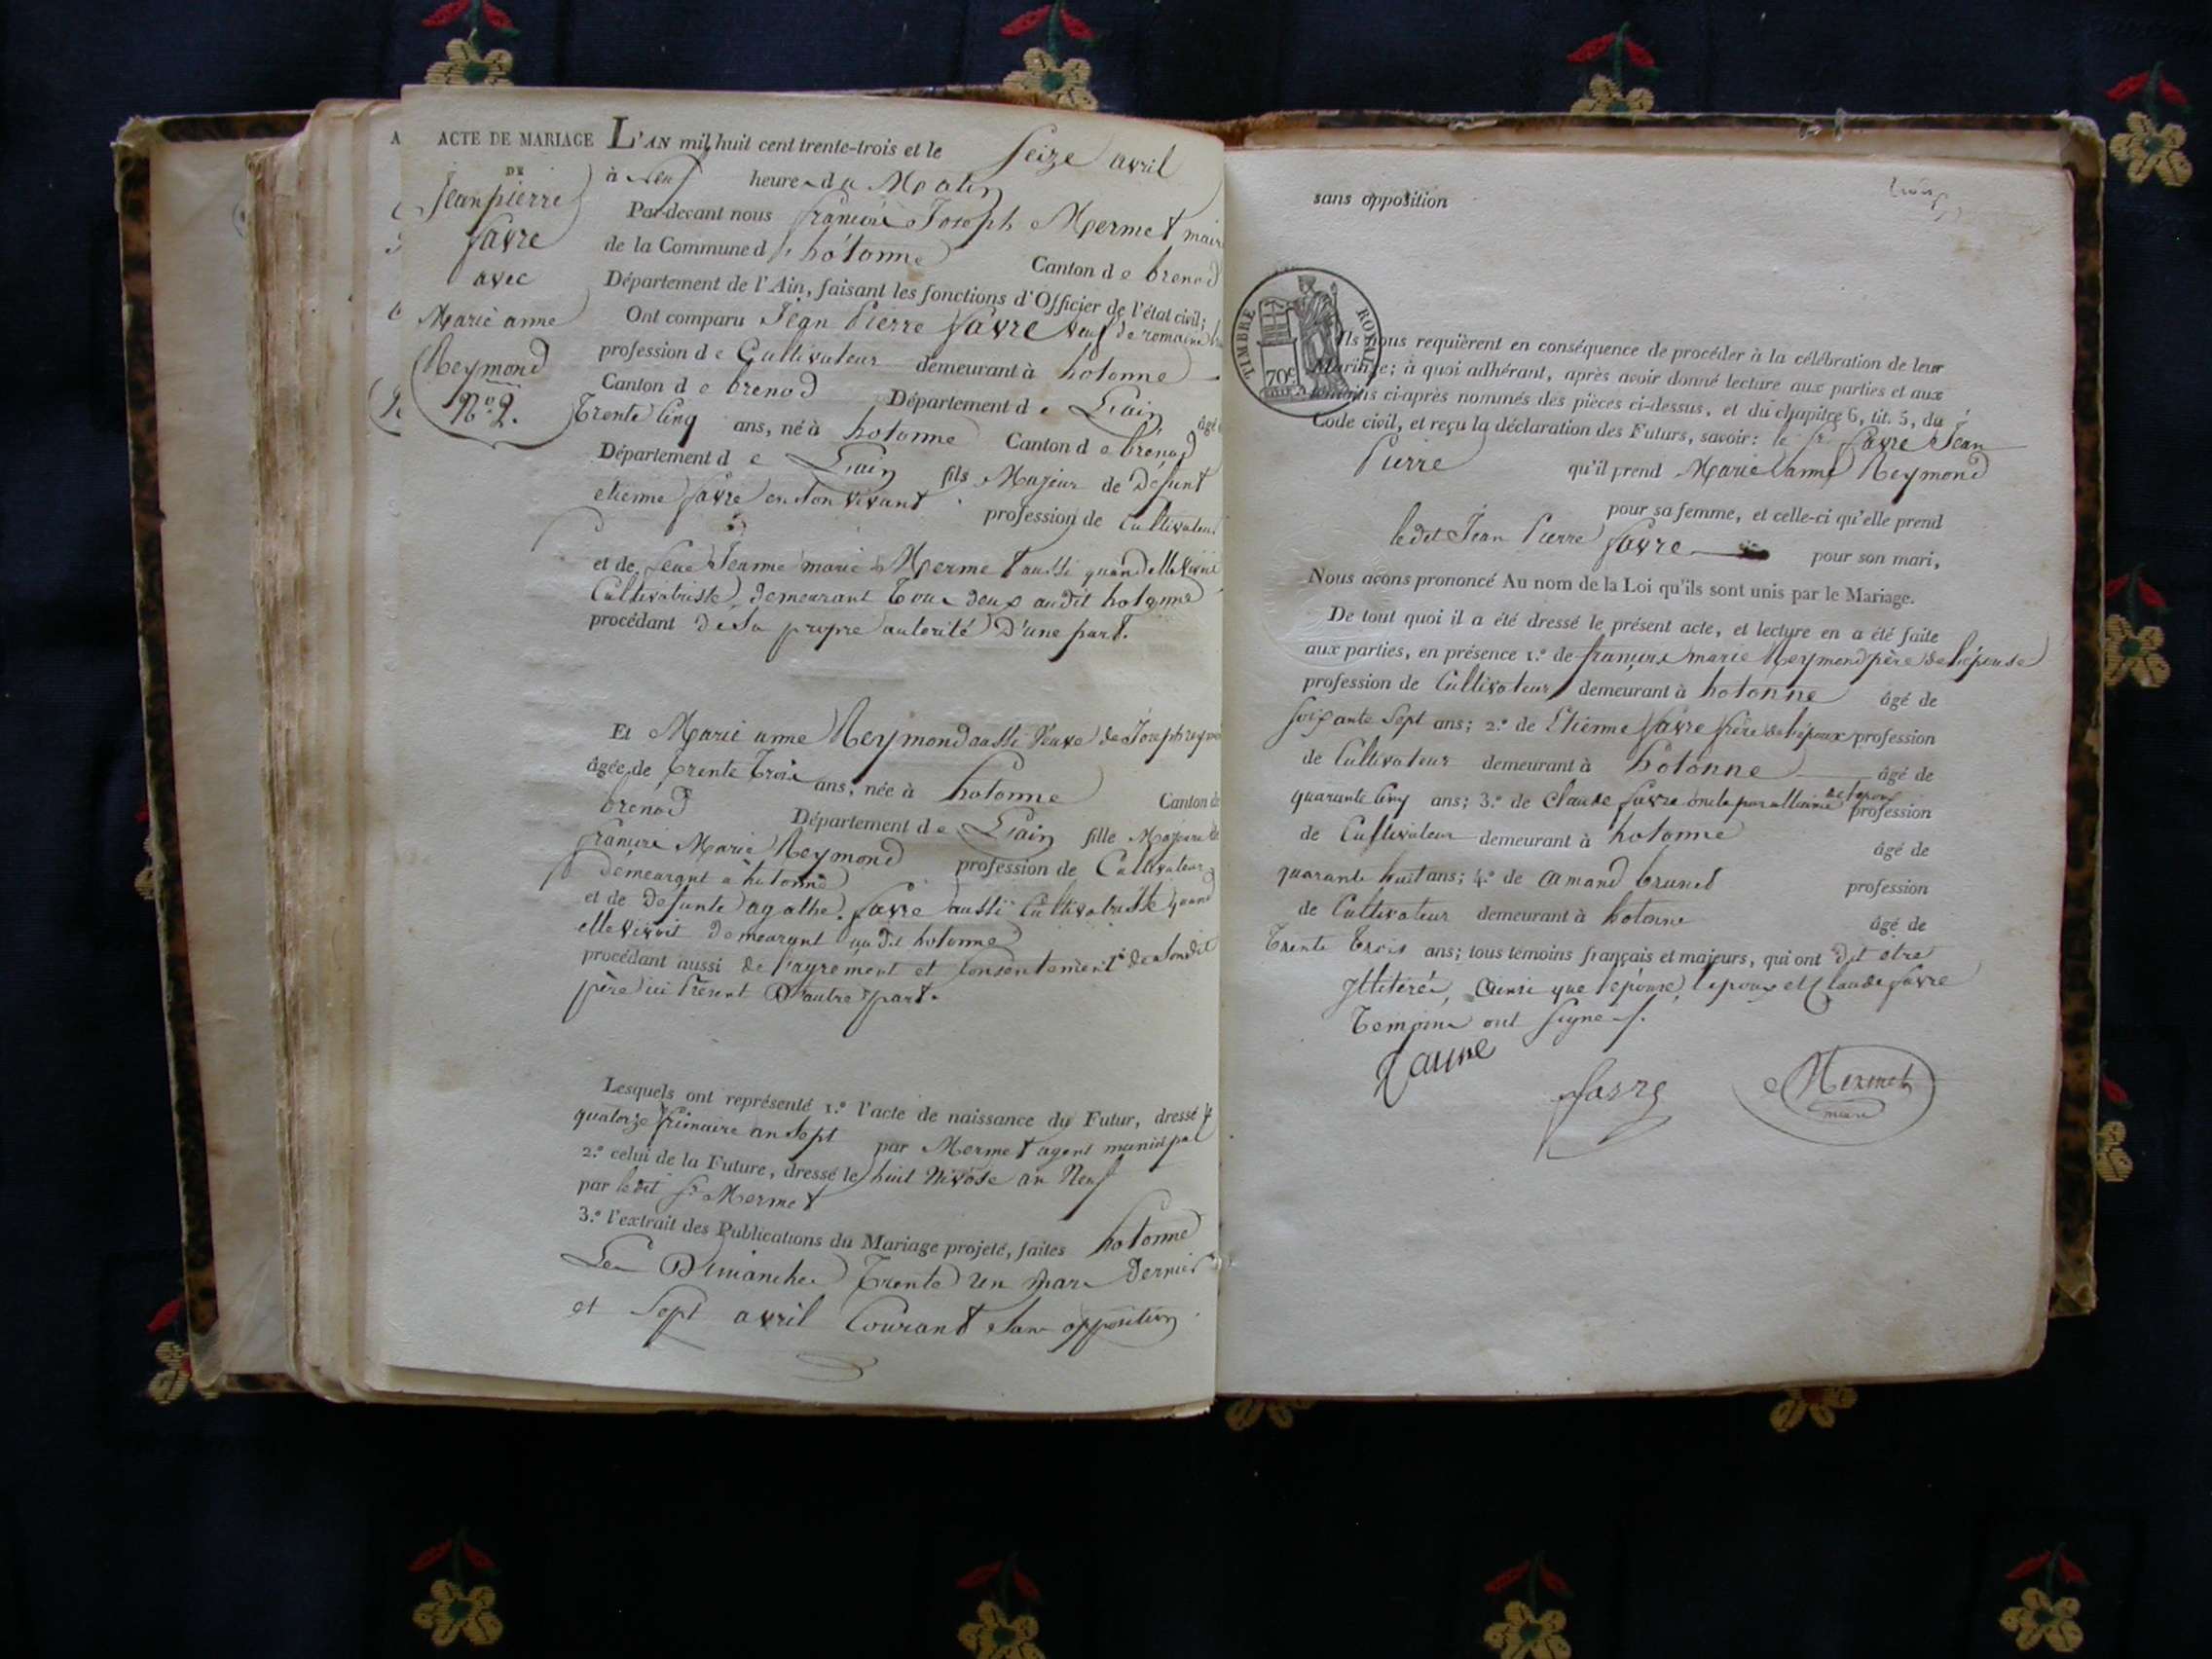 ACTE DE MARIAGE
DE
Jean pierre
favre
avec
Marie anne
Reymond
N.º 2.
L'AN mil huit cent trente-trois et le Seize avril
à neuf heure du Matin
Par-devant nous françois Joseph Mermet maire
de la Commune d'hotonne Canton de brenod
Département de l'Ain, faisant les fonctions d'Officier de l'état civil;
Ont comparu Jean Pierre favre veuf de romaine
profession de Cultivateur demeurant à hotonne
Canton de brenod Département de L'ain âgé
trente Cinq ans, né à hotonne Canton de brénod
Département de L'ain fils Majeur de Défunt
etienne favre en son vivant profession de Cultivateur
et de feue Jeanne marie Mermet aussi quand elle vivoit
Cultivatriste, demeurant tous deux audit hotonne
procédant de sa propre autorité D'une part.
Et Marie anne Reymond aussi veuve de Joseph
âgée de trente trois ans, née à hotonne Canton de
brénod Département de L'ain fille Majeure de
françois Marie Reymond profession de Cultivateur
demeurant à hotonne
et de defunte agathe favre aussi Cultivatriste quand
elle vivoit demeurant au dit hotonne
procédant aussi de l'agrement et Consentement de son dit
père ici Présent D'autre part.
Lesquels ont représenté 1.º l'acte de naissance du Futur, dressé le
quatorze frimaire an Sept par Mermet agent municipal
2.º celui de la Future, dressé le huit Nivose an Neuf
par le dit Sr Mermet
3.º l'extrait des Publications du Mariage projeté, faites hotonne
Les Dimanches trente un mars dernier
et Sept avril Courant sans opposition
sans opposition
TIMBRE ROYAL
70c
Ils nous requièrent en conséquence de procéder à la célébration de leur
Mariage; à quoi adhérant, après avoir donné lecture aux parties et aux
témoins ci-après nommés des pièces ci-dessus, et du chapitre 6, tit. 5, du
Code civil, et reçu la déclaration des Futurs, savoir: le Sr favre Jean
Pierre qu'il prend Marie anne Reymond
pour sa femme, et celle-ci qu'elle prend
ledit Jean Pierre favre pour son mari,
Nous avons prononcé Au nom de la Loi qu'ils sont unis par le Mariage.
De tout quoi il a été dressé le présent acte, et lecture en a été faite
aux parties, en présence 1.º de françois marie Reymond père de l'épouse
profession de Cultivateur demeurant à hotonne âgé de
soixante Sept ans; 2.º de Etienne favre frère de l'époux profession
de Cultivateur demeurant à hotonne âgé de
quarante Cinq ans; 3.º de Claude favre oncle par alliance de l'époux profession
de Cultivateur demeurant à hotonne âgé de
quarante huit ans; 4.º de amand brunet profession
de Cultivateur demeurant à hotonne âgé de
trente trois ans; tous témoins français et majeurs, qui ont dit etre
Illitérés, ainsi que l'épouse, l'epoux et Claude favre
temoins ont signés.
favre
Mermet
maire